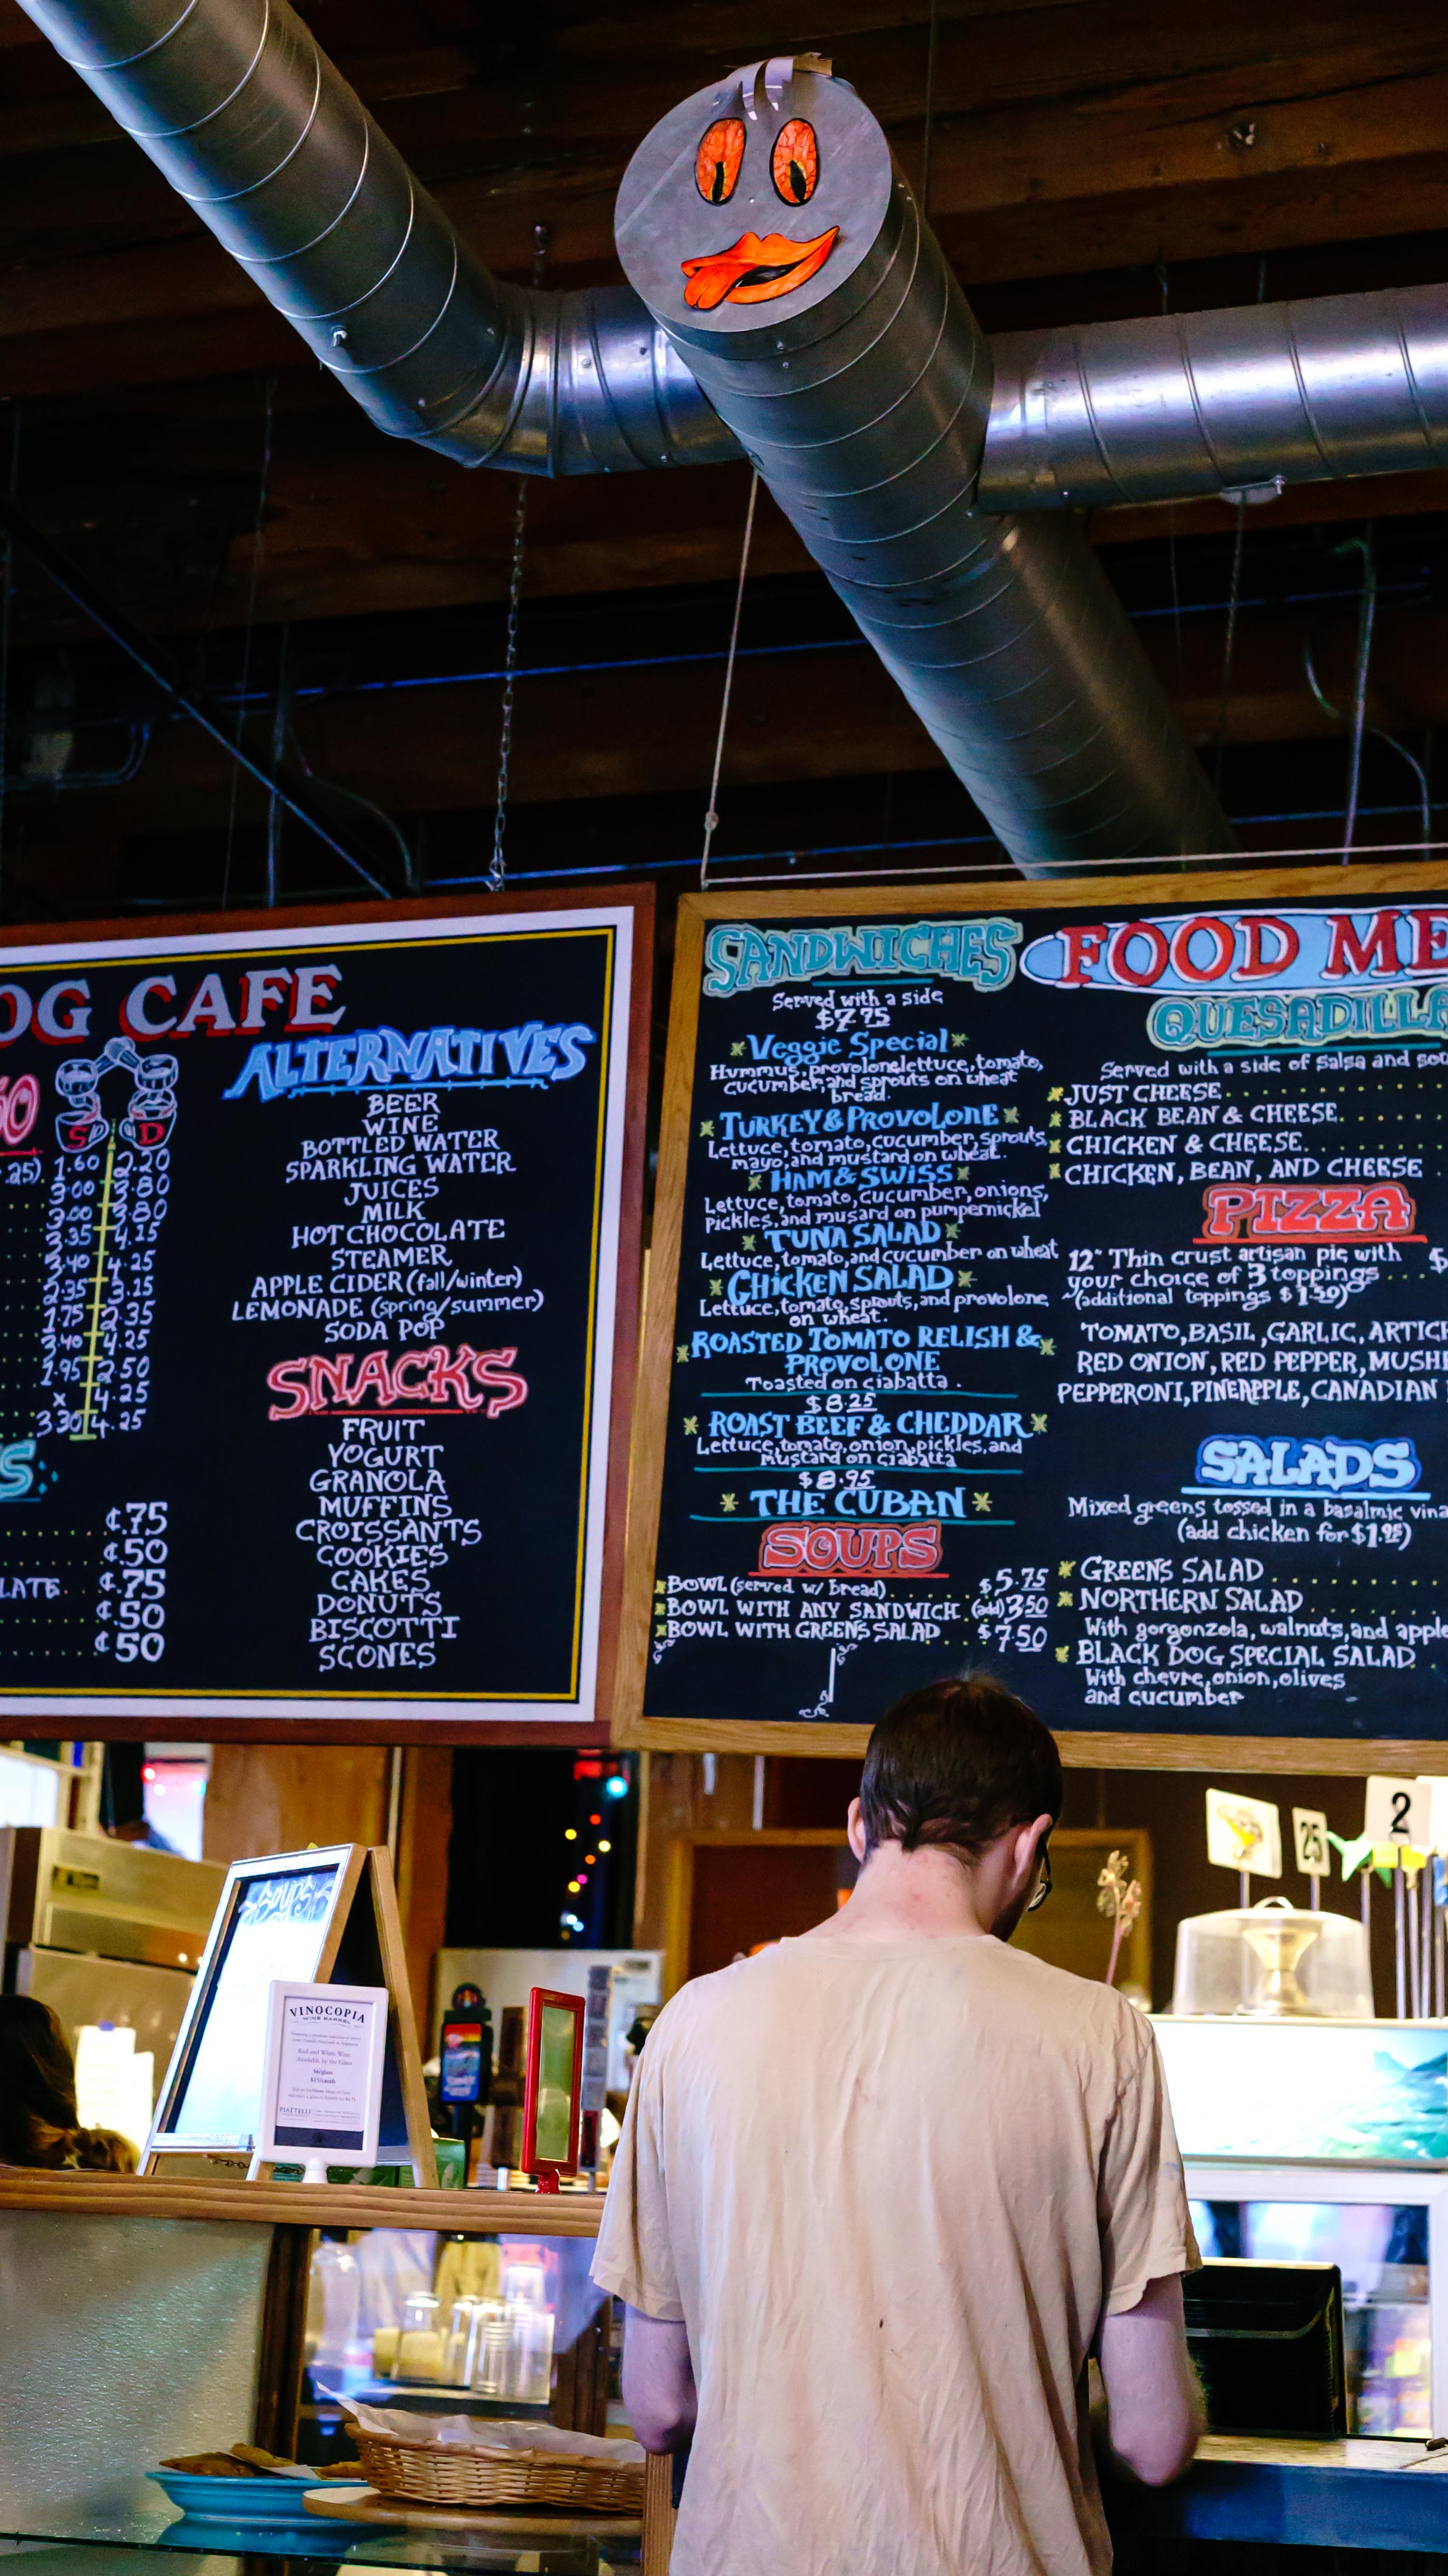 OG CAFE
ALTERNATIVES
BEER
WINE
BOTTLED WATER
SPARKLING WATER
JUICES
MILK
HOT CHOCOLATE
STEAMER
APPLE CIDER (fall/winter)
LEMONADE (spring/summer)
SODA POP
SNACKS
FRUIT
YOGURT
GRANOLA
MUFFINS
CROISSANTS
COOKIES
CAKES
DONUTS
BISCOTTI
SCONES
S D
.25). 1.60 2.20
3.00 3.80
3.00 3.80
3.35 4.15
3.40 4.25
2.35 3.15
1.75 2.35
3.40 4.25
1.95 2.50
x 4.25
3.30 4.25
S
¢.75
¢.50
LATE. ¢.75
¢.50
¢50
SANDWICHES
Served with a side
$7.75
Veggie Special
Hummus, provolone lettuce, tomato,
cucumber, and sprouts on wheat
bread.
TURKEY & PROVOLONE
Lettuce, tomato, cucumber, sprouts,
mayo, and mustard on wheat.
HAM & SWISS
Lettuce, tomato, cucumber, onions,
pickles, and musard on pumpernickel
TUNA SALAD
Lettuce, tomato, and cucumber on wheat
CHICKEN SALAD
Lettuce, tomato, sprouts, and provolone
on wheat.
ROASTED TOMATO RELISH &
PROVOLONE
Toasted on ciabatta.
$8.25
ROAST BEEF & CHEDDAR
Lettuce, tomato, onion, pickles, and
mustard on ciabatta
$8.95
THE CUBAN
SOUPS
BOWL (served w/ bread) . . . . $5.75
BOWL WITH ANY SANDWICH (add) 3.50
BOWL WITH GREENS SALAD . . . $7.50
FOOD ME
QUESADILLA
Served with a side of salsa and sou
JUST CHEESE
BLACK BEAN & CHEESE
CHICKEN & CHEESE
CHICKEN, BEAN, AND CHEESE
PIZZA
12" Thin crust artisan pie with $
your choice of 3 toppings . . .
(additional toppings $1.50)
TOMATO, BASIL, GARLIC, ARTICH
RED ONION, RED PEPPER, MUSH
PEPPERONI, PINEAPPLE, CANADIAN
SALADS
Mixed greens tossed in a basalmic vina
(add chicken for $1.95)
GREENS SALAD
NORTHERN SALAD
With gorgonzola, walnuts, and apple
BLACK DOG SPECIAL SALAD
With chevre, onion, olives
and cucumber
2
25
SOUPS
VINOCOPIA
WINE BARREL
Red and White Wine
Available by the Glass
PIATTELLI